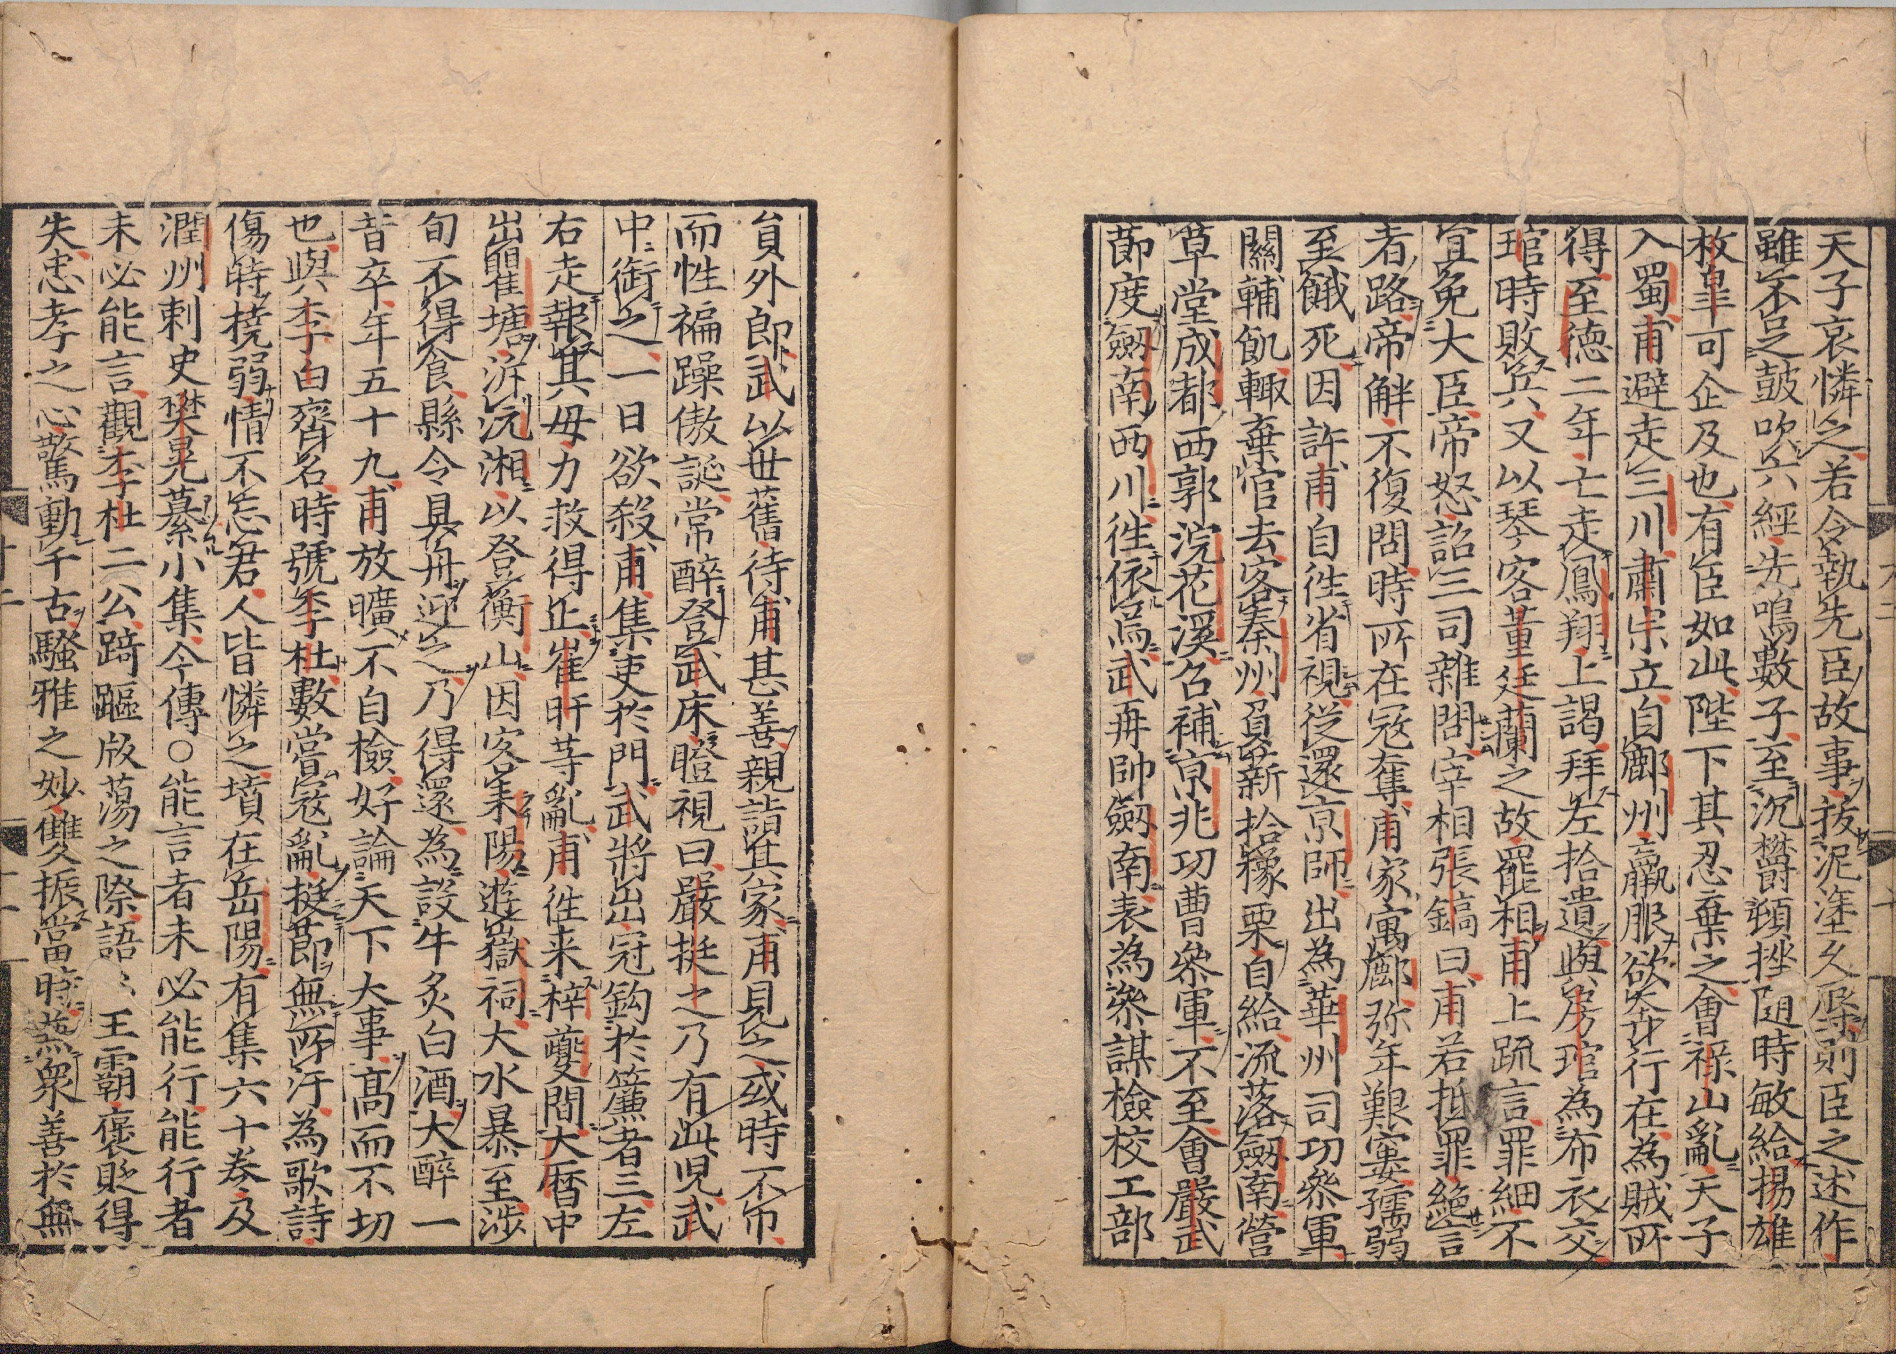 天子哀憐之若令執先臣故事拔泥塗久辱則臣之述作
雖不足鼓吹六經先鳴數子至沉欝頓挫随時敏給揚雄
枚皐可企及也有臣如此陛下其忍棄之會禄山亂天子
入蜀甫避走三川肅宗立自鄜州羸服欲奔行在為賊所
得至德二年亡走鳳翔上謁拜左拾遺與房琯為布衣交
琯時敗兵又以琴客董廷蘭之故罷相甫上疏言罪細不
宜免大臣帝怒詔三司雜問宰相張鎬曰甫若抵罪絶言
者路帝解不復問時所在冦奪甫家寓鄜弥年艱窶孺弱
至餓死因許甫自徃省視從還京師出為華州司功叅軍
關輔飢輙棄官去客秦州負薪拾橡栗自給流落劔南營
草堂成都西郭浣花溪召補京兆功曹叅軍不至會嚴武
節度劔南西川徃依焉武再帥劔南表為叅謀檢校工部
貟外郎武以世舊待甫甚善親詣其家甫見之或時不巾
而性褊躁傲誕常醉登武床瞪視曰嚴挺之乃有此児武
中銜之一日欲殺甫集吏於門武將出冠鈎於簾者三左
右走報其母力救得止崔旰等亂甫徃来梓夔間大暦中
出瞿塘泝沅湘以登衡山因客耒陽遊嶽祠大水暴至涉
旬不得食縣令具舟迎之乃得還為設牛炙白酒大醉一
昔卒年五十九甫放曠不自檢好論天下大事高而不切
也與李白齊名時號李杜數嘗冦亂挺節無所汙為歌詩
傷時撓弱情不忘君人皆憐之墳在岳陽有集六十巻及
潤州刺史樊晃纂小集今傳○能言者未必能行能行者
未必能言觀李杜二公踦䧢版蕩之際語〻王霸褒貶得
失忠孝之心驚動千古騷雅之妙雙振當時燕衆善於無